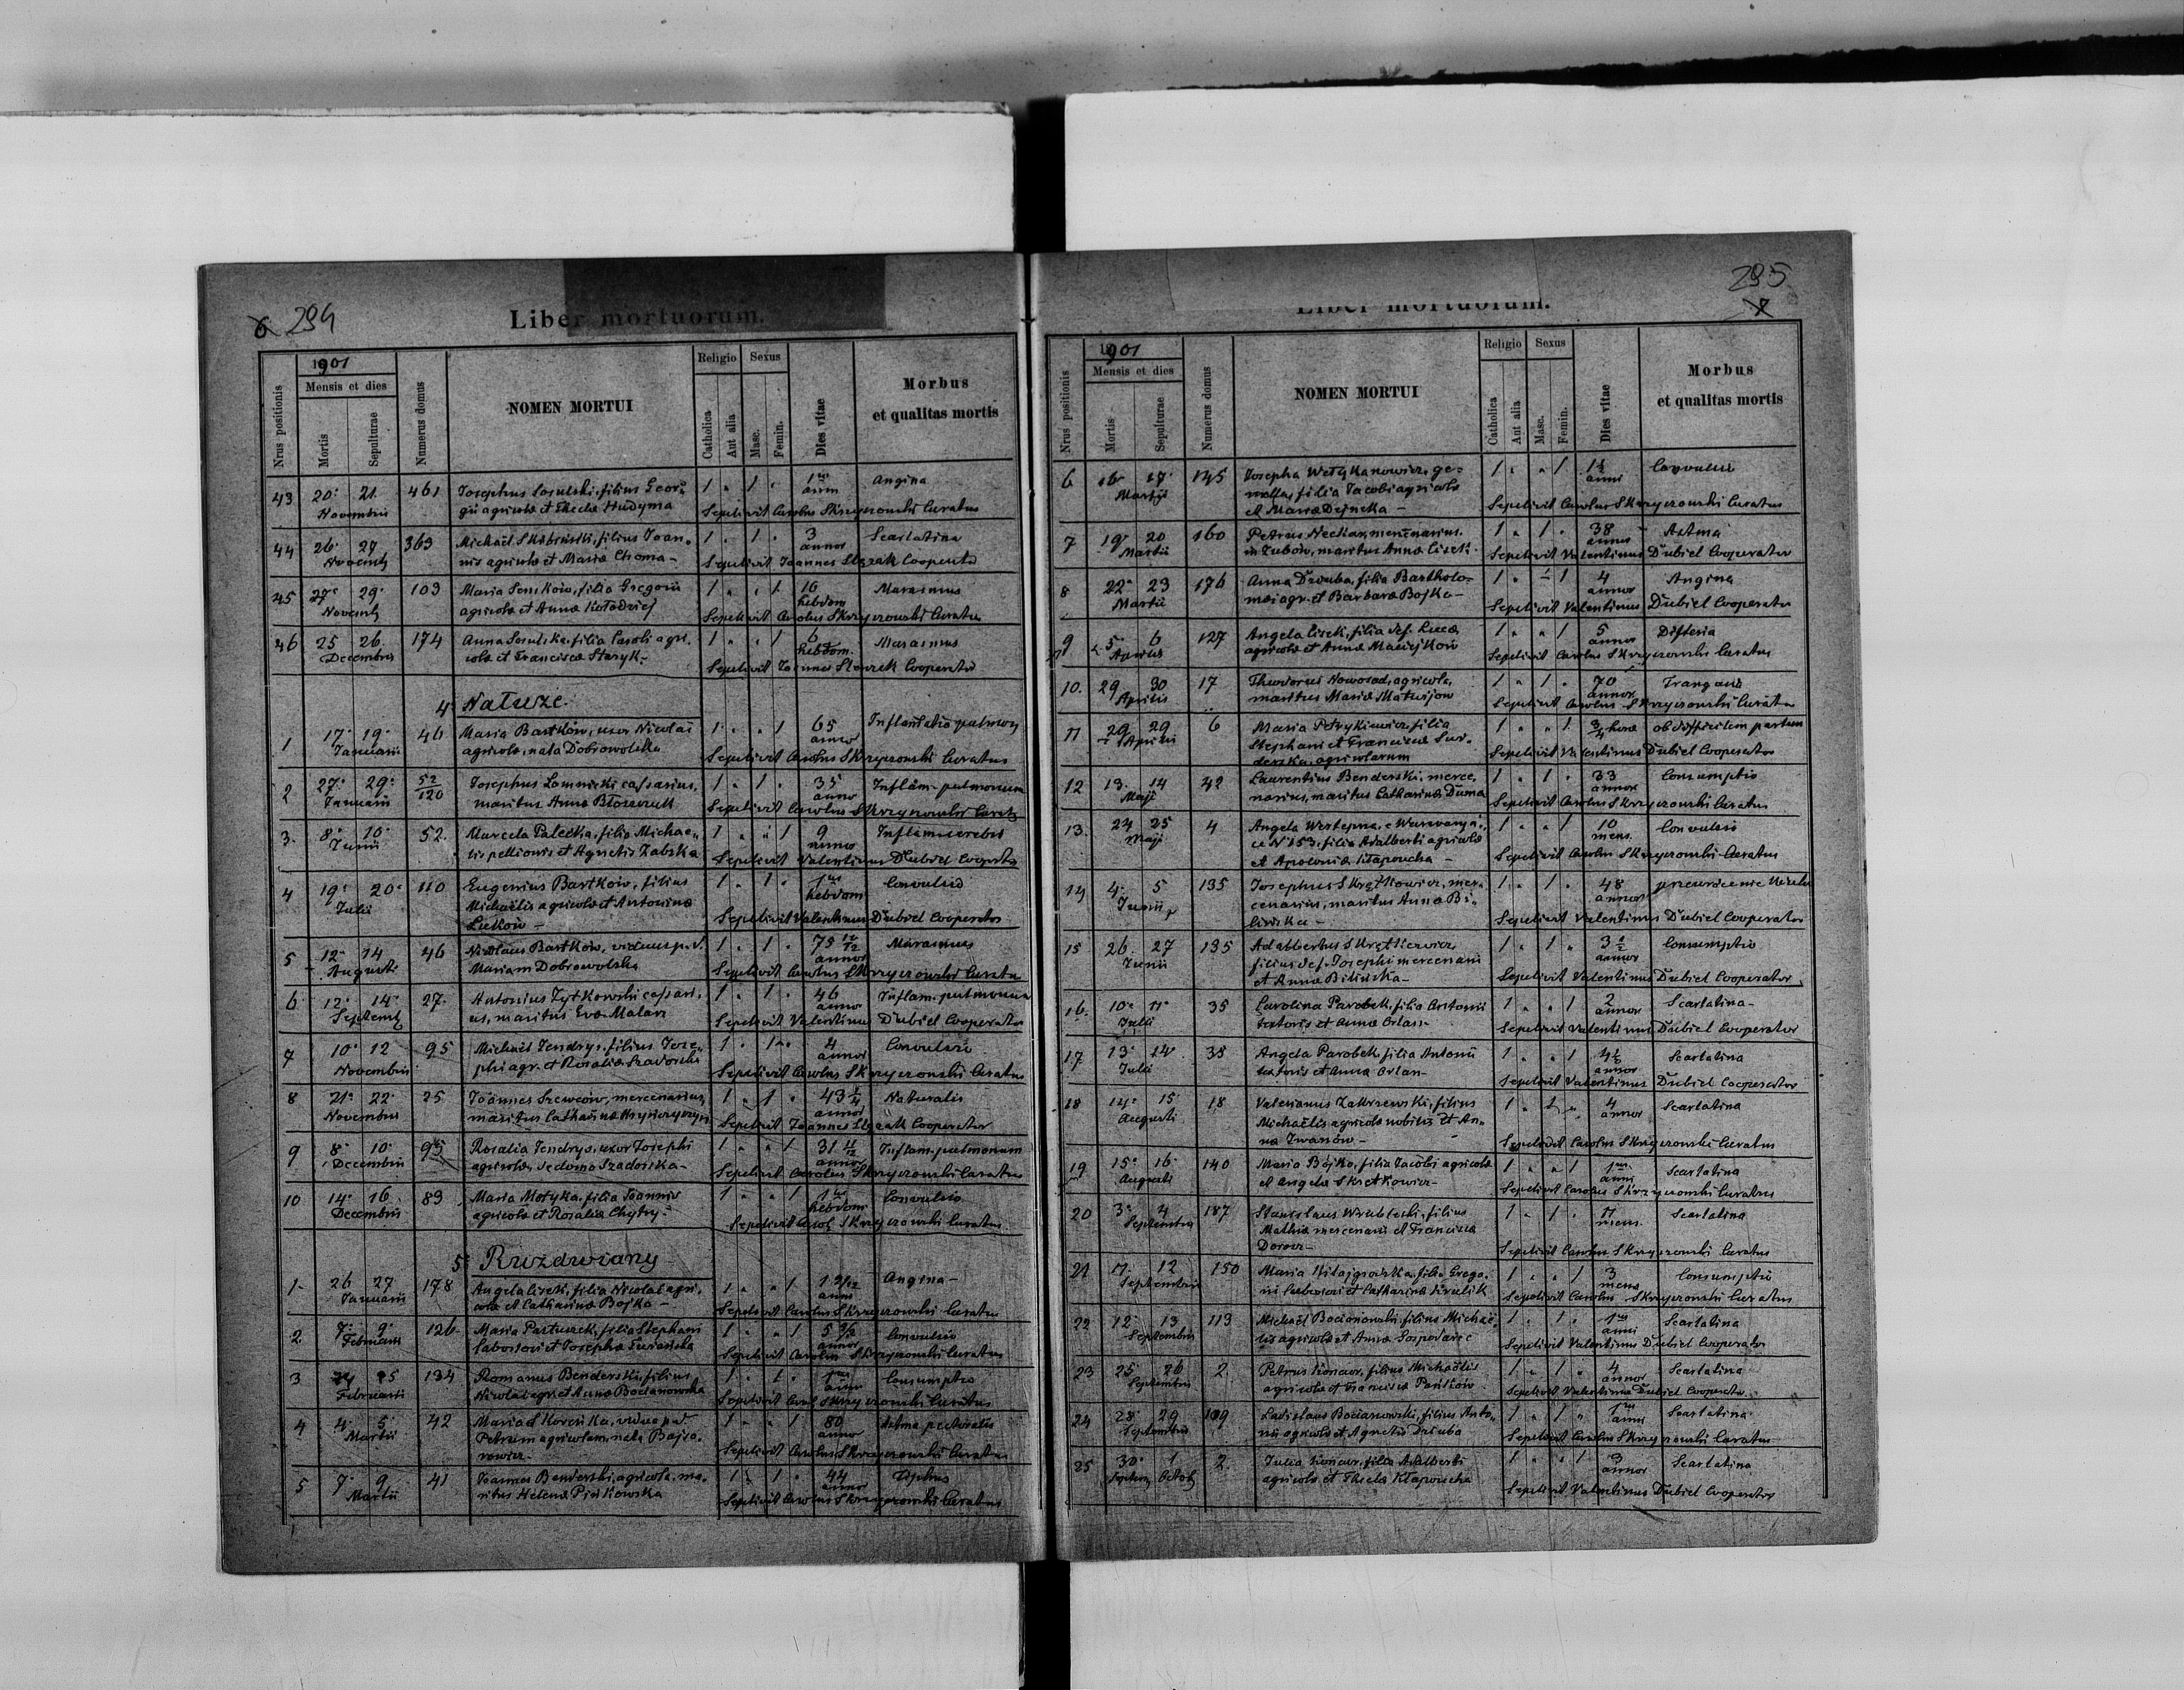 6 294
Liber mortuorum.
1901
Nrus positionis
Mensis et dies
Mortis
Sepulturae
Numerus domus
NOMEN MORTUI
Religio
Catholica
Aut alia
Sexus
Masc.
Femin.
Dies vitae
Morbus
et qualitas mortis
43 20 21 461 Josephus Sosulski, filius Geor- 1 1 1us Angina
Novembris gii agricola et Thecla Hudyma anni
Sepelivit Carolus Skrzyczowski Curatus
44 26 27 363 Michaël filius Joan- 1 1 3 Scarlatina
nis agricola et Maria Choma annor
Sepelivit Joannes Cooperator
45 27 29 103 Maria Senkow, filia Gregorii 1 1 16 Marasmus
agricola et Anna Kołodziej hebdom
Sepelivit Carolus Skrzyczowski Curatus
46 25 26 174 Anna Sosulska, filia Caroli agri- 1 1 6 Marasmus
Decembris cola et Francisca Staryk hebdom.
Sepelivit Joannes Cooperator
4 Natuze.
1 17 19 46 Maria Bartków, uxor Nicolai 1 1 65
Januarii agricola, nata Dobrowolska annor
Sepelivit Carolus Skrzyczowski Curatus
2 27 29 52/120 Josephus Łomnicki 1 1 35 Inflam. pulmonum
Januarii maritus Anna annor
Sepelivit Carolus Skrzyczowski
3. 8 10 52. Marcela filia Michae- 1 1 9
Junii lis pellionis et Agnetis Zabska
Sepelivit Valentinus Dubiel
4 19 20 110 Eugenius Bartków, filius 1 1 1us Convulsio
Julii Michaëlis agricola et Antonina hebdom
Sepelivit Valentinus Dubiel Cooperator
5 12 14 46 Nicolaus Bartków, viduus p. d. 1 1 75 Marasmus
Augusti Mariam Dobrowolska annor
Sepelivit Carolus Skrzyczowski Curatus
6 12 14 27. Antonius Zytkowski 1 1 46 Inflam. pulmonum
maritus Eva Malarz annor
Sepelivit Valentinus Dubiel Cooperator
7 10 12 95 Michaël Jendrys, filius Jose- 1 1 4 Convulsio
Novembris phi agr. et Rosalia annor
Sepelivit Carolus Skrzyczowski Curatus
8 21 22 25 Joannes Szewców, mercenarius 1 1 43 1/4 Naturalis
Novembris maritus Catharina annor
Sepelivit Joannes Cooperator
9 8 10 95 Rosalia Jendrys, uxor Josephi 1 1 31 Inflam. pulmonum
Decembris agricola, de domo Szadorska annor
Sepelivit Carolus Skrzyczowski Curatus
10 14 16 83 Maria Motyka, filia Joannis 1 1 1us Convulsio
Decembris agricola et Rosalia Chytry hebdom
Sepelivit Carol Skrzyczowski Curatus
5 Ruzdwiany
1. 26 27 178 Angela Lisek, filia Nicolai agri- 1 1 1 9/12 Angina
Januarii cola et Catharina Bojko anni
Sepelivit Carolus Skrzyczowski Curatus
2. 7 9 126 Maria filia Stephani 1 1 5 Convulsio
Februarii et Josepha annor
Sepelivit Carolus Skrzyczowski Curatus
3 25 134 Romanus Benderski, filius 1 1 1us Consumptio
Februarii Nicolai agr. et Anna Bocianowska anni
Sepelivit Carol Skrzyczowski Curatus
4 4 5 42 Maria vidua p. d. 1 1 80 Astma pectoralis
Martii Petrum agricolam, nata annor
Sepelivit Carolus Skrzyczowski Curatus
5 7 9 41 Joannes Benderski, agricola, ma- 1 1 44 Typhus
Martii ritus Helena annor
Sepelivit Carolus Skrzyczowski Curatus
295
7
Liber mortuorum.
1901
Nrus positionis
Mensis et dies
Mortis
Sepulturae
Numerus domus
NOMEN MORTUI
Religio
Catholica
Aut alia
Sexus
Masc.
Femin.
Dies vitae
Morbus
et qualitas mortis
6 16 17 145 Josepha ge- 1 1 1 1/2 Convulsio
Martii mella, filia Jacobi agricola anni
et Maria Dejneka
Sepelivit Carolus Skrzyczowski Curatus
7 19 20 160 Petrus mercenarius 1 1 38 Astma
Martii in Zubów, maritus Anna Lisek annor
Sepelivit Valentinus Dubiel Cooperator
8 22 23 176 Anna Dziuba, filia Bartholo- 1 1 4 Angina
Martii maei agr. et Barbara Bojko annor
Sepelivit Valentinus Dubiel Cooperator
9 5 6 127 Angela Lisek, filia def. Luca 1 1 5 Difteria
Aprilis agricola et Anna Maciejków annor
Sepelivit Carolus Skrzyczowski Curatus
10. 29 30 17 Theodorus Nowosad, agricola, 1 1 70
Aprilis maritus Maria Matwijow annor
Sepelivit Carolus Skrzyczowski Curatus
11 29 29 6 Maria Petrykiewicz, filia 1 1 3/4 hora ob difficilem partum
Aprilis Stephani et Francisca
agricolarum
Sepelivit Valentinus Dubiel Cooperator
12 13 14 42 Laurentius Benderski, merce- 1 1 33 Consumptio
Maji narius, maritus Catharina Duma annor
Sepelivit Carolus Skrzyczowski Curatus
13. 24 25 4 Angela 1 1 10 Convulsio
Maji N 153, filia Adalberti agricola mens.
et Apolonia Kłapoucha
Sepelivit Carolus Skrzyczowski Curatus
14 4 5 135 Josephus Skrętkowicz, mer- 1 1 48
Junii cenarius, maritus Anna Bi- annor
lińska
Sepelivit Valentinus Dubiel Cooperator
15 26 27 135 Adalbertus Skrętkowicz, 1 1 3 1/2 Consumptio
Junii filius def. Josephi mercenarii annor
et Anna Bilińska
Sepelivit Valentinus Dubiel Cooperator
16. 10 11 35 Carolina Parobek, filia Antonii 1 1 2 Scarlatina
Julii et Anna Orlan annor
Sepelivit Valentinus Dubiel Cooperator
17 13 14 35 Angela Parobek, filia Antonii 1 1 4 1/2 Scarlatina
Julii et Anna Orlan annor
Sepelivit Valentinus Dubiel Cooperator
18 14 15 18 Valerianus Zakrzewski, filius 1 1 4 Scarlatina
Augusti Michaëlis agricola nobilis et An- annor
na Iwanów
Sepelivit Carolus Skrzyczowski Curatus
19 15 16 140 Maria Bojko, filia Jacobi agricola 1 1 1us Scarlatina
Augusti et Angela Skrętkowicz anni
Sepelivit Carolus Skrzyczowski Curatus
20 3 4 187 Stanislaus Wrublewski, filius 1 1 11 Scarlatina
Septembris Mathia mercenarii et Francisca mens.
Sepelivit Carolus Skrzyczowski Curatus
21 11 12 150 Maria filia Grego- 1 1 3 Consumptio
Septembris rii et Catharina mens
Sepelivit Carolus Skrzyczowski Curatus
22 12 13 113 Michaël Bocianowski, filius Michaë- 1 1 1us Scarlatina
Septembris lis agricola et Anna Gospodarec anni
Sepelivit Valentinus Dubiel Cooperator
23 25 26 2. Petrus Koncur, filius Michaëlis 1 1 4 Scarlatina
Septembris agricola et Francisca Pańków annor
Sepelivit Valentinus Dubiel Cooperator
24 28 29 109 Ladislaus Bocianowski, filius Anto- 1 1 1us Scarlatina
Septembris nii agricola et Agnetis Dziuba anni
Sepelivit Carolus Skrzyczowski Curatus
25 30 1 2. Julia Koncur, filia Adalberti 1 1 3 Scarlatina
agricola et Thecla Kłapoucha annor
Sepelivit Valentinus Dubiel Cooperator